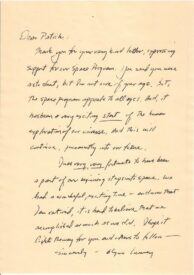 Dear Patrick:
Thank you for your very kind letter, expressing
support for our Space Program. I'm not sure you were
but I'm not sure of your age, but,
the space program appeals to all ages. And, it
has been a very exciting start of the human
exploration of our universe. And this will
continue, presently into our future.
I was very very fortunate to have been
a part of our beginning steps into space. We
had a wonderful, exciting time – and now that
I'm retired, it is hard to believe that we
accomplished as much as we did. I hope it
for you and others to follow –
Sincerely –